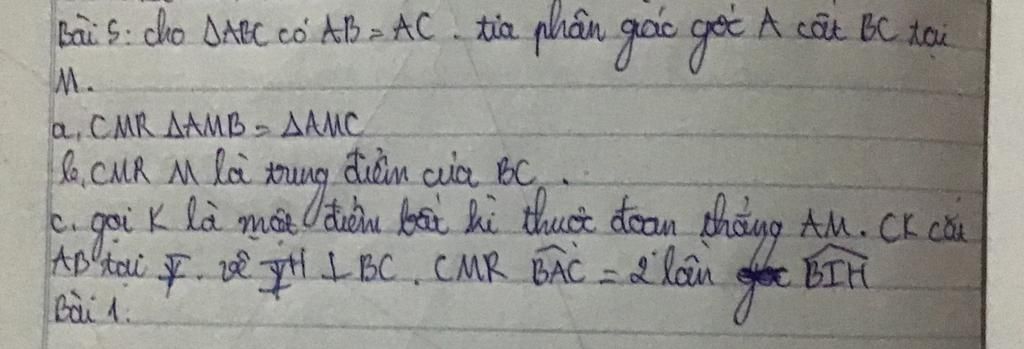 Bài 5: cho ΔABC có AB = AC. tia phân giác góc A cắt BC tại
M.
a, CMR ΔAMB = ΔAMC
b, CMR M là trung điểm của BC.
c. gọi K là một điểm bất kì thuộc đoạn thẳng AM. CK cắt
AB tại I. vẽ IH ⊥ BC. CMR \widehat{BAC} = 2 lần góc \widehat{BIH}
Bài 1: